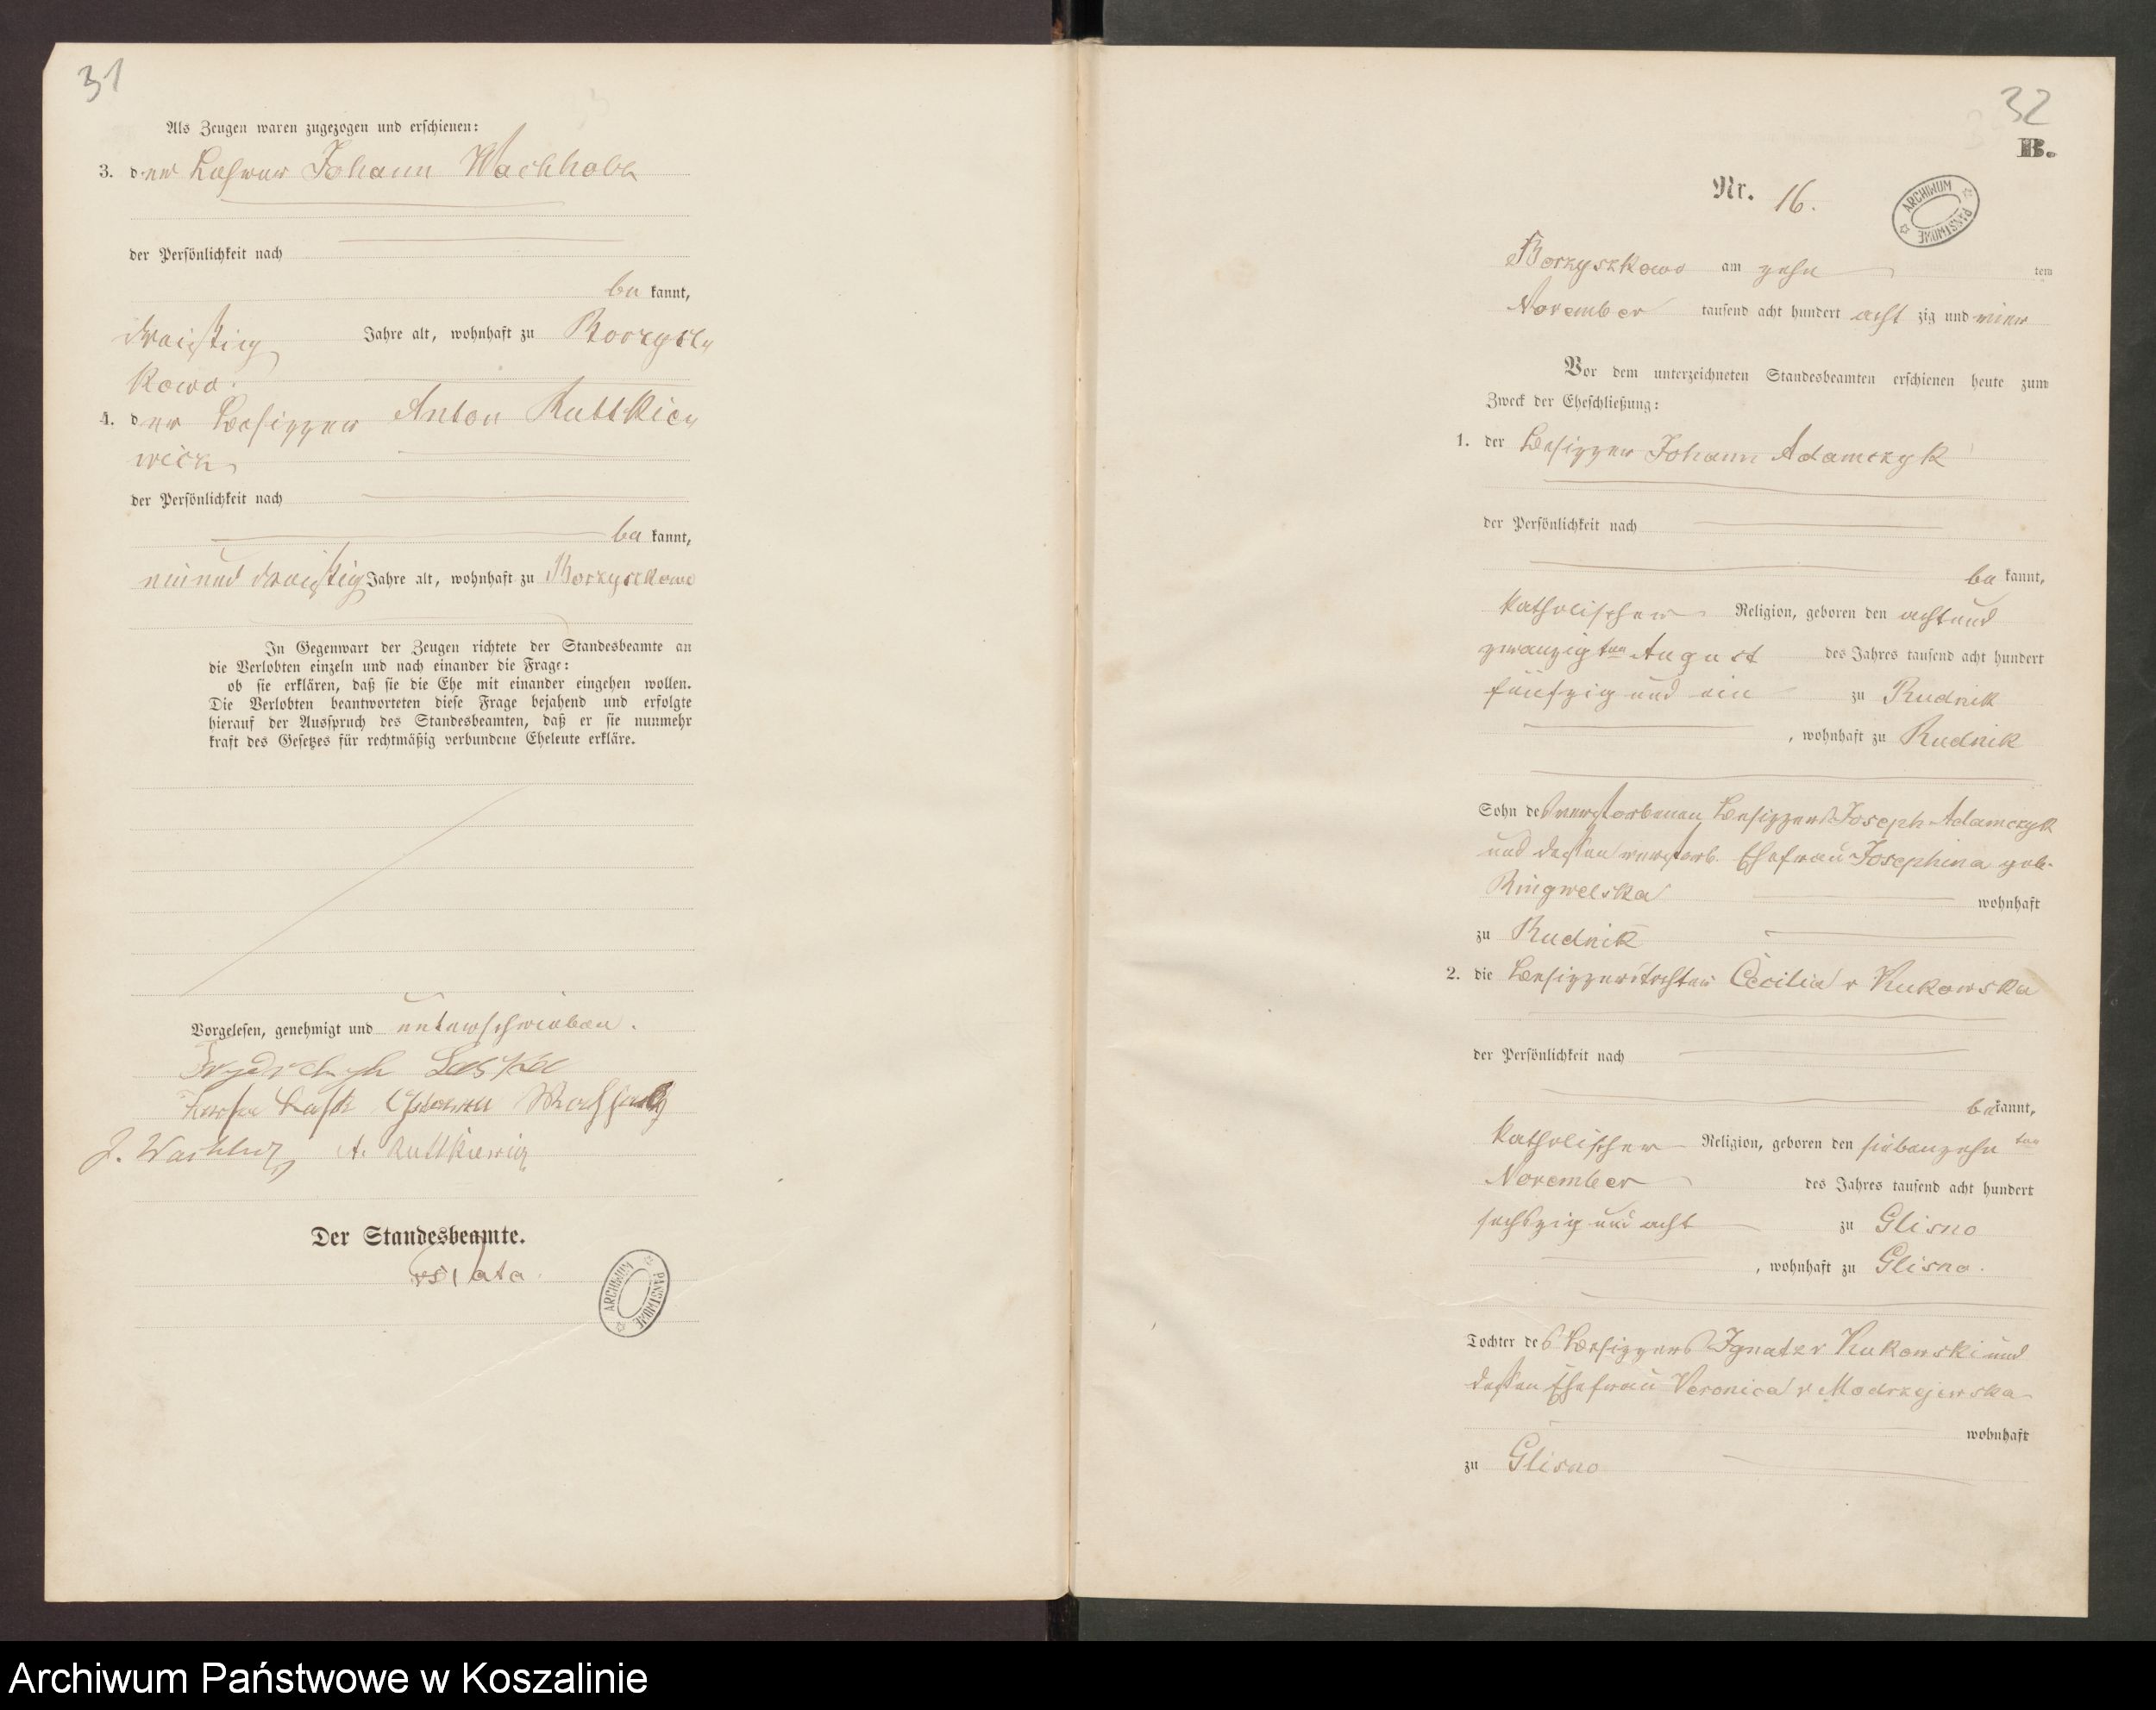 31
Als Zeugen waren zugezogen und erschienen:
3. der Lehrer Johann Wachholz
der Persönlichkeit nach
be kannt,
dreißig Jahre alt, wohnhaft zu Borzysz-
kowo.
4. der Besitzer Anton Kuttkie-
wicz
der Persönlichkeit nach
be kannt,
neunund dreißig Jahre alt, wohnhaft zu Borzyszkowo
In Gegenwart der Zeugen richtete der Standesbeamte an
die Verlobten einzeln und nach einander die Frage:
ob sie erklären, daß sie die Ehe mit einander eingehen wollen.
Die Verlobten beantworteten diese Frage bejahend und erfolgte
hierauf der Ausspruch des Standesbeamten, daß er sie nunmehr
kraft des Gesetzes für rechtmäßig verbundene Eheleute erkläre.
Vorgelesen, genehmigt und unterschrieben.
J. Wachholz A. Kuttkiewicz
Der Standesbeamte.
ARCHIWUM PAŃSTWOWE
32
B.
Nr. 16.
ARCHIWUM PAŃSTWOWE
Borzyszkowo am zehn tem
November tausend acht hundert acht zig und vier
Vor dem unterzeichneten Standesbeamten erschienen heute zum
Zweck der Eheschließung:
1. der Besitzer Johann Adamczyk
der Persönlichkeit nach
be kannt,
katholischer Religion, geboren den achtund
zwanzigten August des Jahres tausend acht hundert
fünfzig und ein zu Rudnik
, wohnhaft zu Rudnik
Sohn des verstorbenen Besitzers Joseph Adamczyk
und dessen verstorb. Ehefrau Josephina geb.
Ringwelska wohnhaft
zu Rudnik
2. die Besitzerstochter Cecilia v Kukowska
der Persönlichkeit nach
bekannt,
katholischer Religion, geboren den siebenzehn ten
November des Jahres tausend acht hundert
sechszig und acht zu Glisno
, wohnhaft zu Glisno.
Tochter des Besitzers Ignatz v Kukowski und
dessen Ehefrau Veronica v Modrzejewska
wohnhaft
zu Glisno
Archiwum Państwowe w Koszalinie